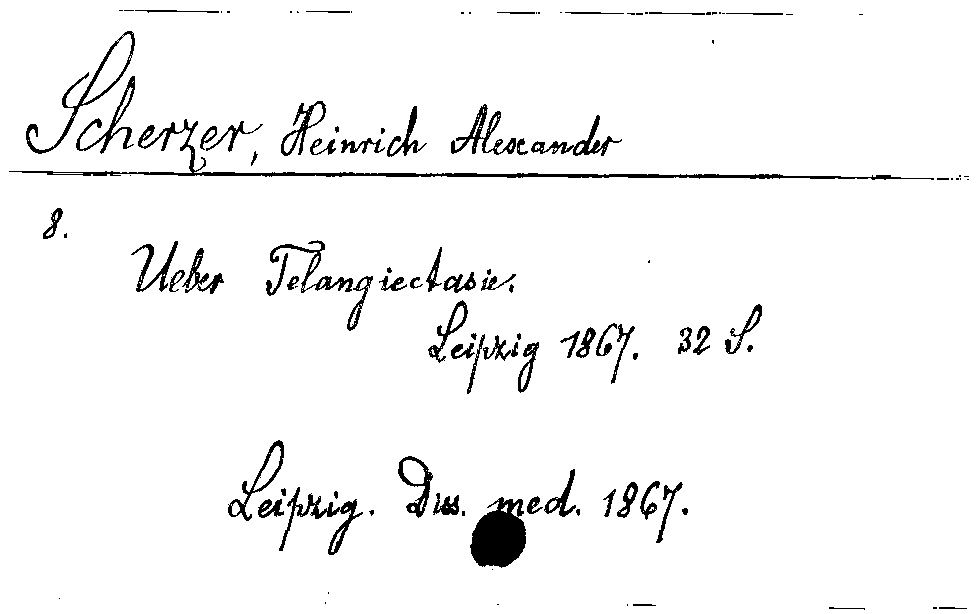 Scherzer, Heinrich Alexander
8.
Ueber Telangiectasie.
Leipzig 1867. 32 S.
Leipzig. Diss. med. 1867.